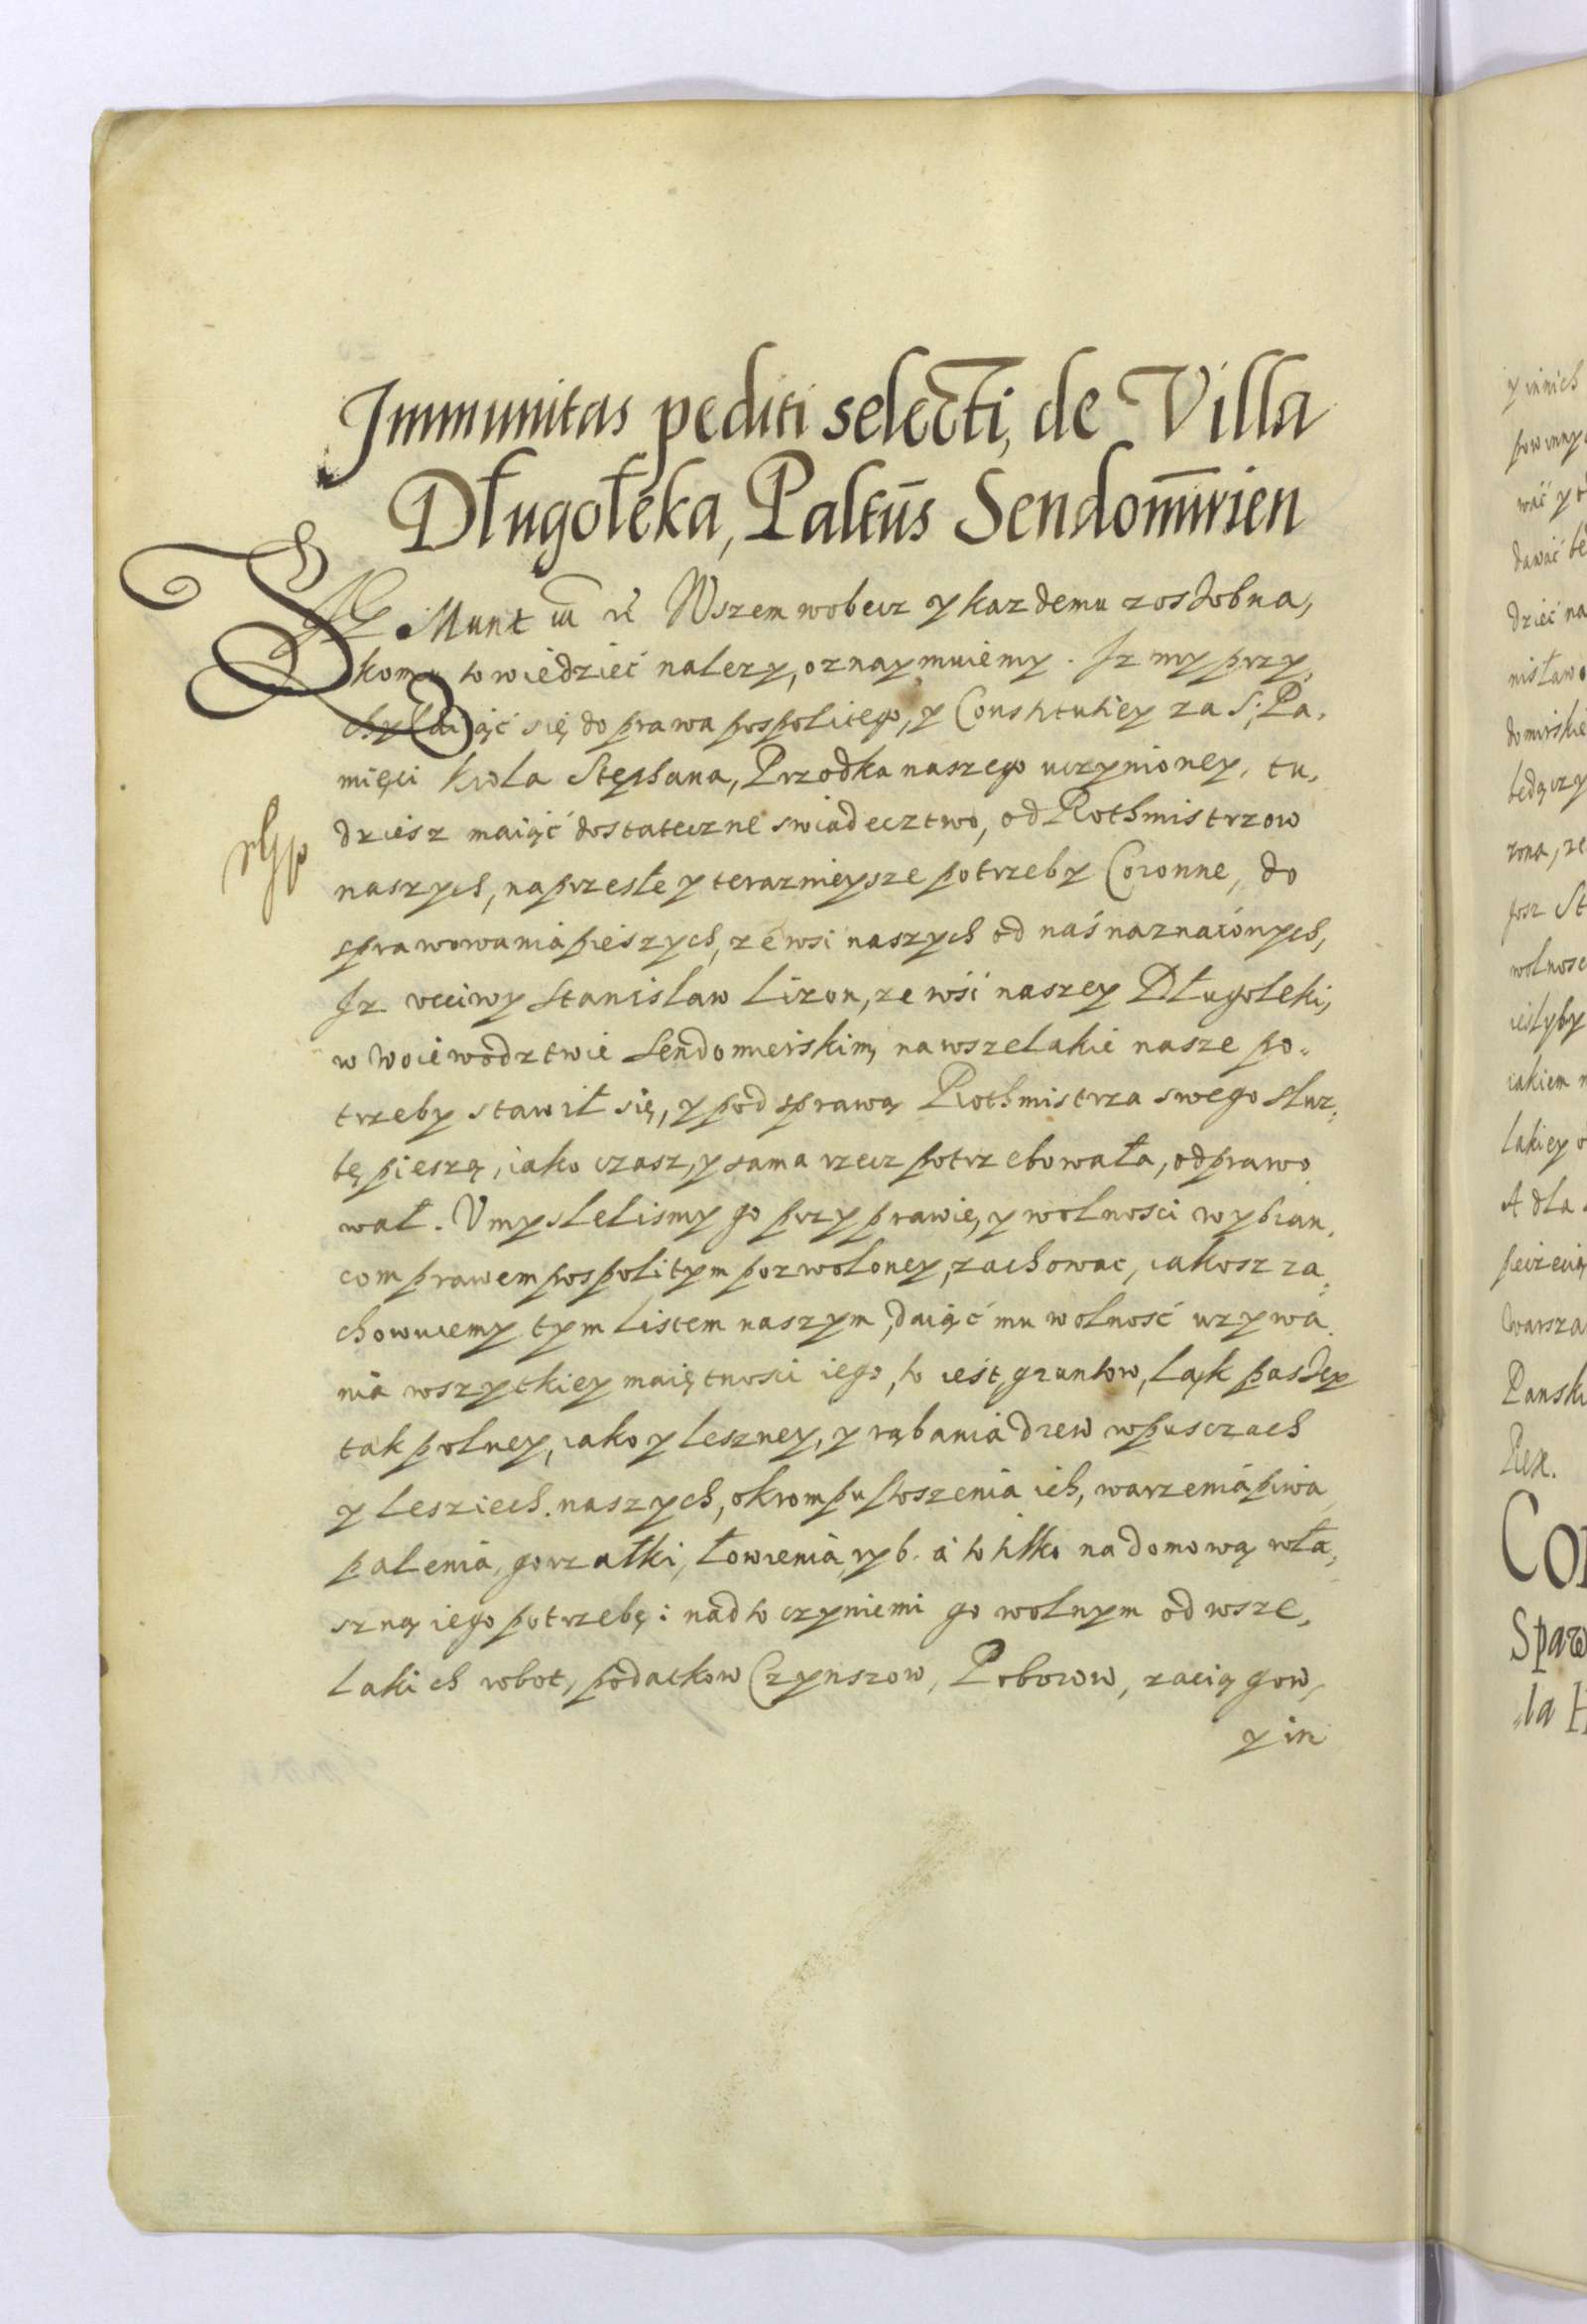 Immunitas pediti selecti, de Villa
Długołeka, Paltūs Sendomirien
Munt iii rē Wszem wobecz y kazdemu zosobna,
komu to wiedzieć nalezy, oznaymuiemy. Iz my przy,
chyldiąć się do prawa pospolitego, y Constitutiey za S: Pa,
mięci Krola Stephana, Przodka naszego uczynioney, tu,
dziesz maiąć dostateczne swiadecztwo, od Rothmistrzow
naszych, na przeszłe y teraznieysze potrzeby Coronne, do
sprawowania pieszych, ze wsi naszych od nas naznaczonych,
Iz ucciwy Stanislaw Lizon, ze wsi naszey Długoleki,
w woiewodztwie Sendomierskim, na wszelakie nasze po,,
trzeby stawił się, y pod sprawą Rothmistrza swego służ,
bę pieszą, iako czasz, y sama rzecz potrzebowała, odprawo,
wał. Umyslelismy go przy prawie, y wolnosci wybran,
com prawem pospolitym pozwoloney, zachowac, iakosz za,
chowuiemy tym listem naszym, daiąć mu wolność uzywa,
nia wszytkiey maiętnosci iego, to iest, gruntow, ląk pastey
tak polney, iako y leszney, y rąbania drew w pusczach
y lesziech naszych, okrom pustoszenia ich, warzenia piwa
palenia, gorzałki, łowienia, ryb. a to tilko na domową wła,
szną iego potrzebę: nad to czyniemi go wolnym od wsze,
lakich robot, podatkow Czynszow, Poborow, zaciągow,
y in